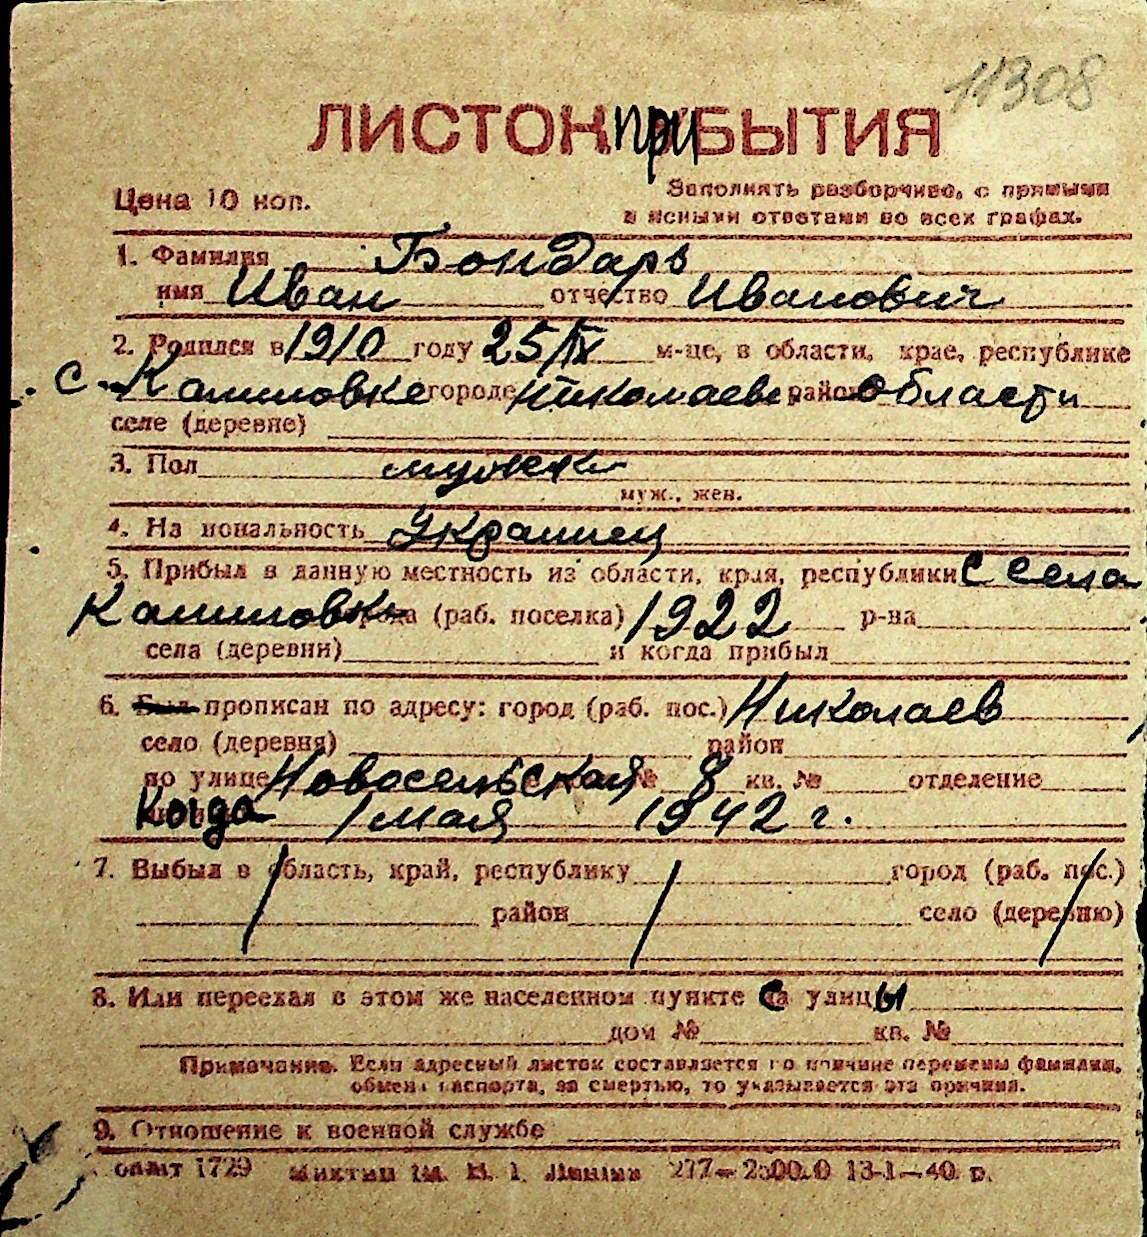 11308
ЛИСТОК ПРИБЫТИЯ
Цена 10 коп.
Заполнять разборчиво, с прямыми
и ясными ответами во всех графах.
1. Фамилия Бондарь
имя Иван отчество Иванович
2. Родился в 1910 году 25/IX м-це, в области, крае, республике
с. Калиновке городе Николаевс районе области
селе (деревне)
3. Пол мужск
муж., жен.
4. Национальность Украинец
5. Прибыл в данную местность из области, края, республики с села
Калиновк города (раб. поселка) 1922 р-на
села (деревни) и когда прибыл
6. Был прописан по адресу: город (раб. пос.) Николаев
село (деревня) район
по улице Новосельская № 8 кв. № отделение
Когда 1 мая 1942 г.
7. Выбыл в область, край, республику город (раб. пос.)
район село (деревню)
8. Или переехал в этом же населенном пункте с улицы
дом № кв. №
Примечание. Если адресный листок составляется по причине перемены фамилии,
обмена паспорта, за смертью, то указывается эта причина.
9. Отношение к военной службе
1729 277— 13-1—40. р.